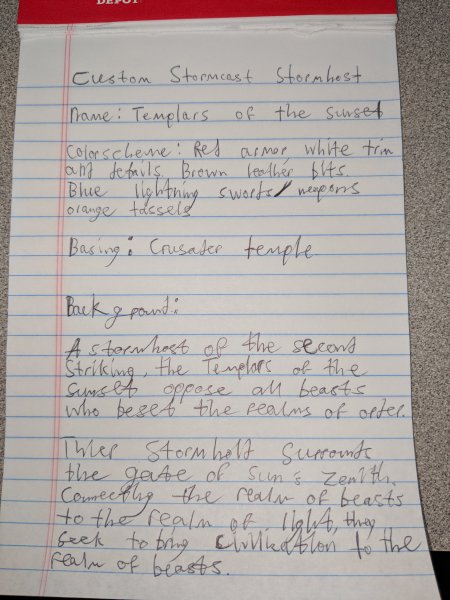 DEPOT
Custom Stormcast Stormhost
Name: Templars of the sunset
Colorscheme: Red armor white trim
and details. Brown leather bits.
Blue lightning swords/weapons
orange tassels
Basing: Crusader temple
Background:
A stormhost of the second
Striking, the Templars of the
sunset oppose all beasts
who beset the realms of order.
Thier Stormholt Surrounds
the gate of Sun's Zenith.
Connecting the realm of beasts
to the realm of light, they
seek to bring civilization to the
realm of beasts.